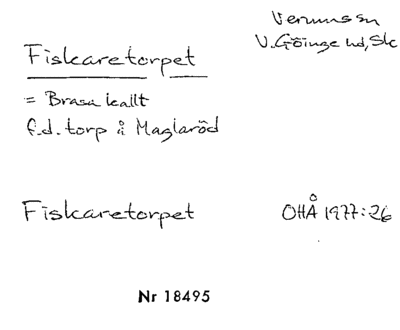 Verums sn
V. Göinge hd, Sk
Fiskaretorpet
= Brasakallt
f.d. torp å Maglaröd
Fiskaretorpet
OHÅ 1977:26
Nr 18495